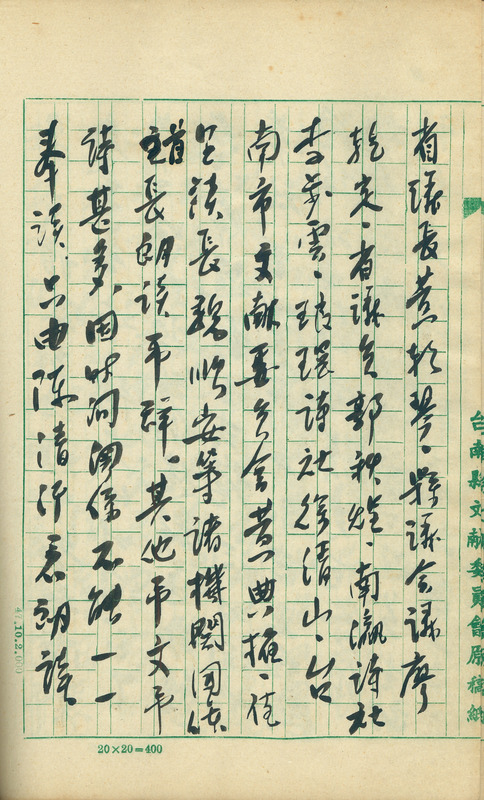 省議長黃朝琴、縣議會議廖
乾定、省議員郭秋煌、南瀛詩社
李步雲、琅環詩社徐清山、台
南市文獻委員會黃典權、佳
里鎮長魏順安等諸機關團體
首長朗讀弔辭。其他弔文弔
詩甚多,因時間關係不能一一
奉讀。只由陳清汗君朗讀
台南縣文獻委員會原稿紙
20×20=400